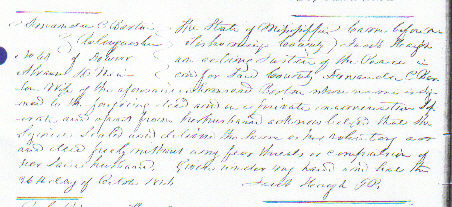 Amanda C Barton } The State of Mississippi } Came before me
Relinquishment } Tishomingo County } Jacob Hough
of Dower an acting Justice of the Peace in
and for Said County Amanda C Bar
ton Wife of the aforesaid Barton whose name is sig
ned to the foregoing deed and on private examination Sep
erate and apart from her husband acknowledged that she
Signed Sealed and delivered the same as her voluntary act
and deed freely without any fear threats or compulsion of
her said husband. Given under my hand and seal the
26th day of Jacob Hough JP.